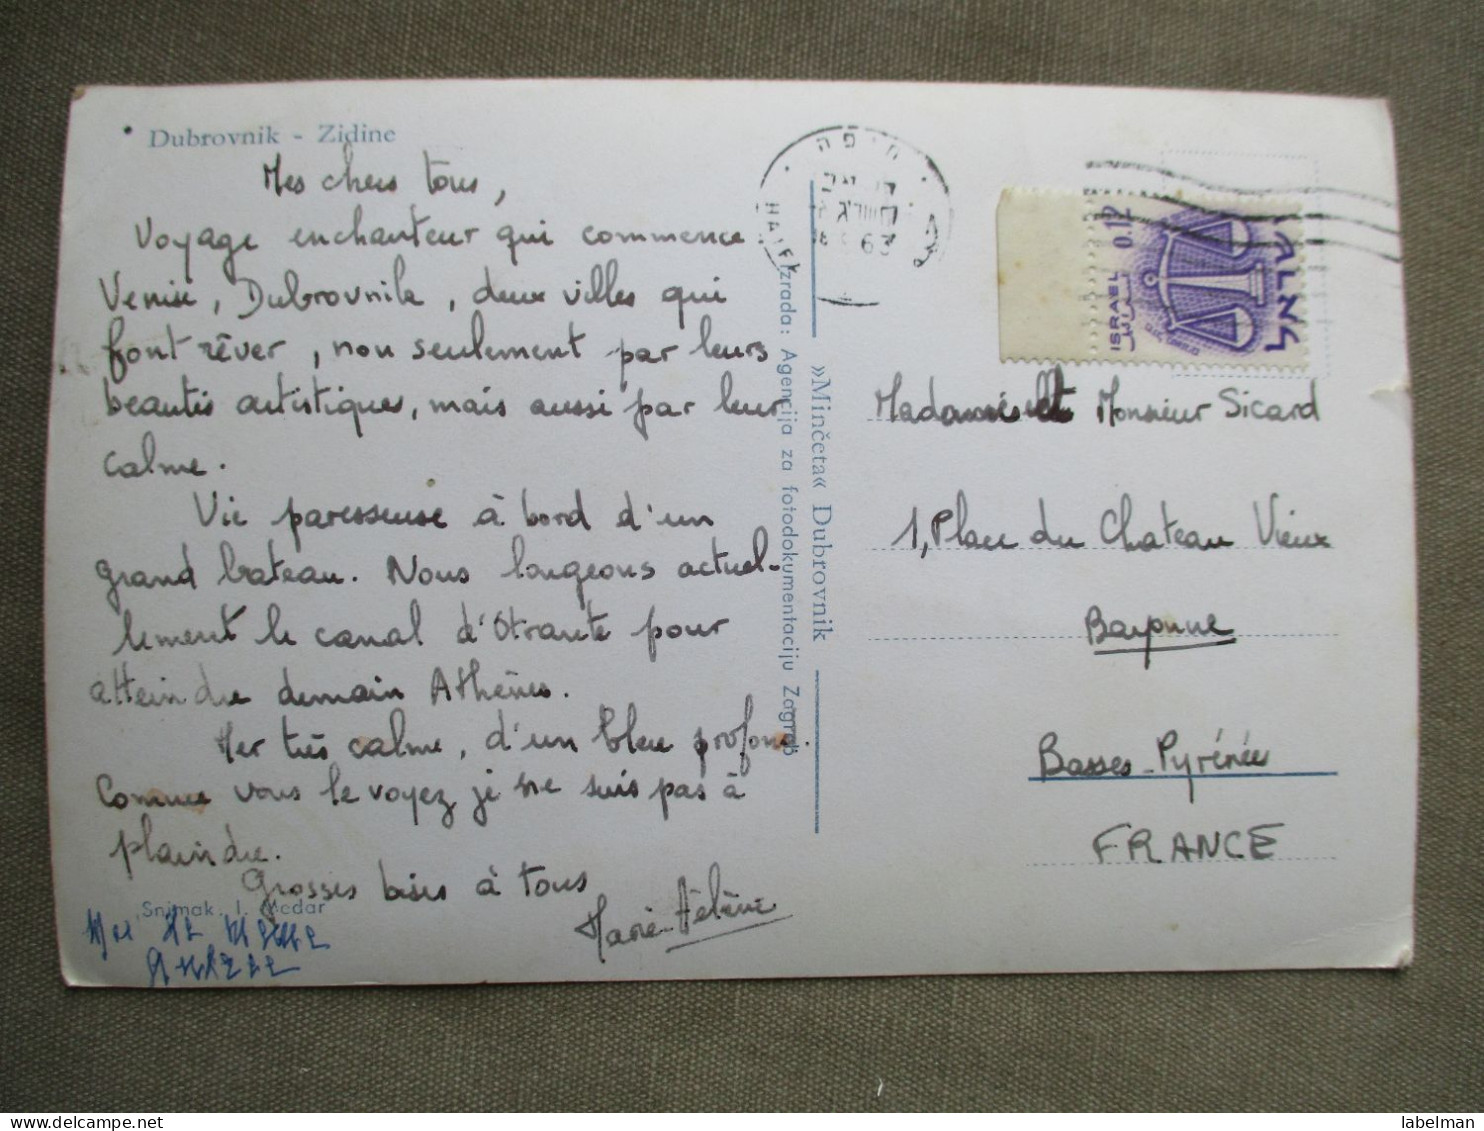 Dubrovnik - Zidine
Mes chers tous,
Voyage enchanteur qui commence.
Venise, Dubrovnik, deux villes qui
font rêver, non seulement par leurs
beautés artistiques, mais aussi par leur
calme.
Vie paresseuse à bord d'un
grand bateau. Nous longeons actuel-
lement le canal d'Otrante pour
atteindre demain Athènes.
Mer très calme, d'un bleu profond.
Comme vous le voyez je ne suis pas à
plaindre.
Grosses bises à tous
Marie-Hélène
Snimak I. Medar
Izrada: Agencija za fotodokumentaciju Zagreb
»Minčeta« Dubrovnik
חיפה
HAIFA
63
ISRAEL 0.12
إسرائيل
ישראל
Monsieur Sicard
1, Place du Chateau Vieux
Bayonne
Basses-Pyrénées
FRANCE
labelman
www.delcampe.net